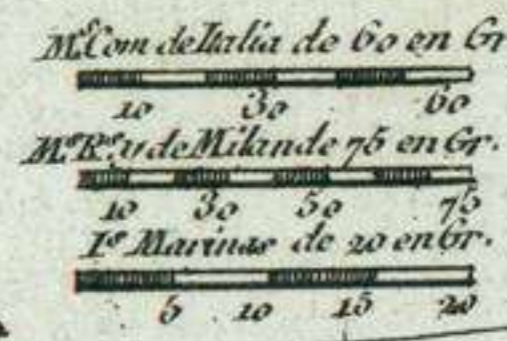 Ms. Com de Italia de 60 en Gr
10 30 60
Ms. Rs. y de Milan de 75 en Gr.
10 30 50 75
Ls. Marinas de 20 en Gr.
5 10 15 20